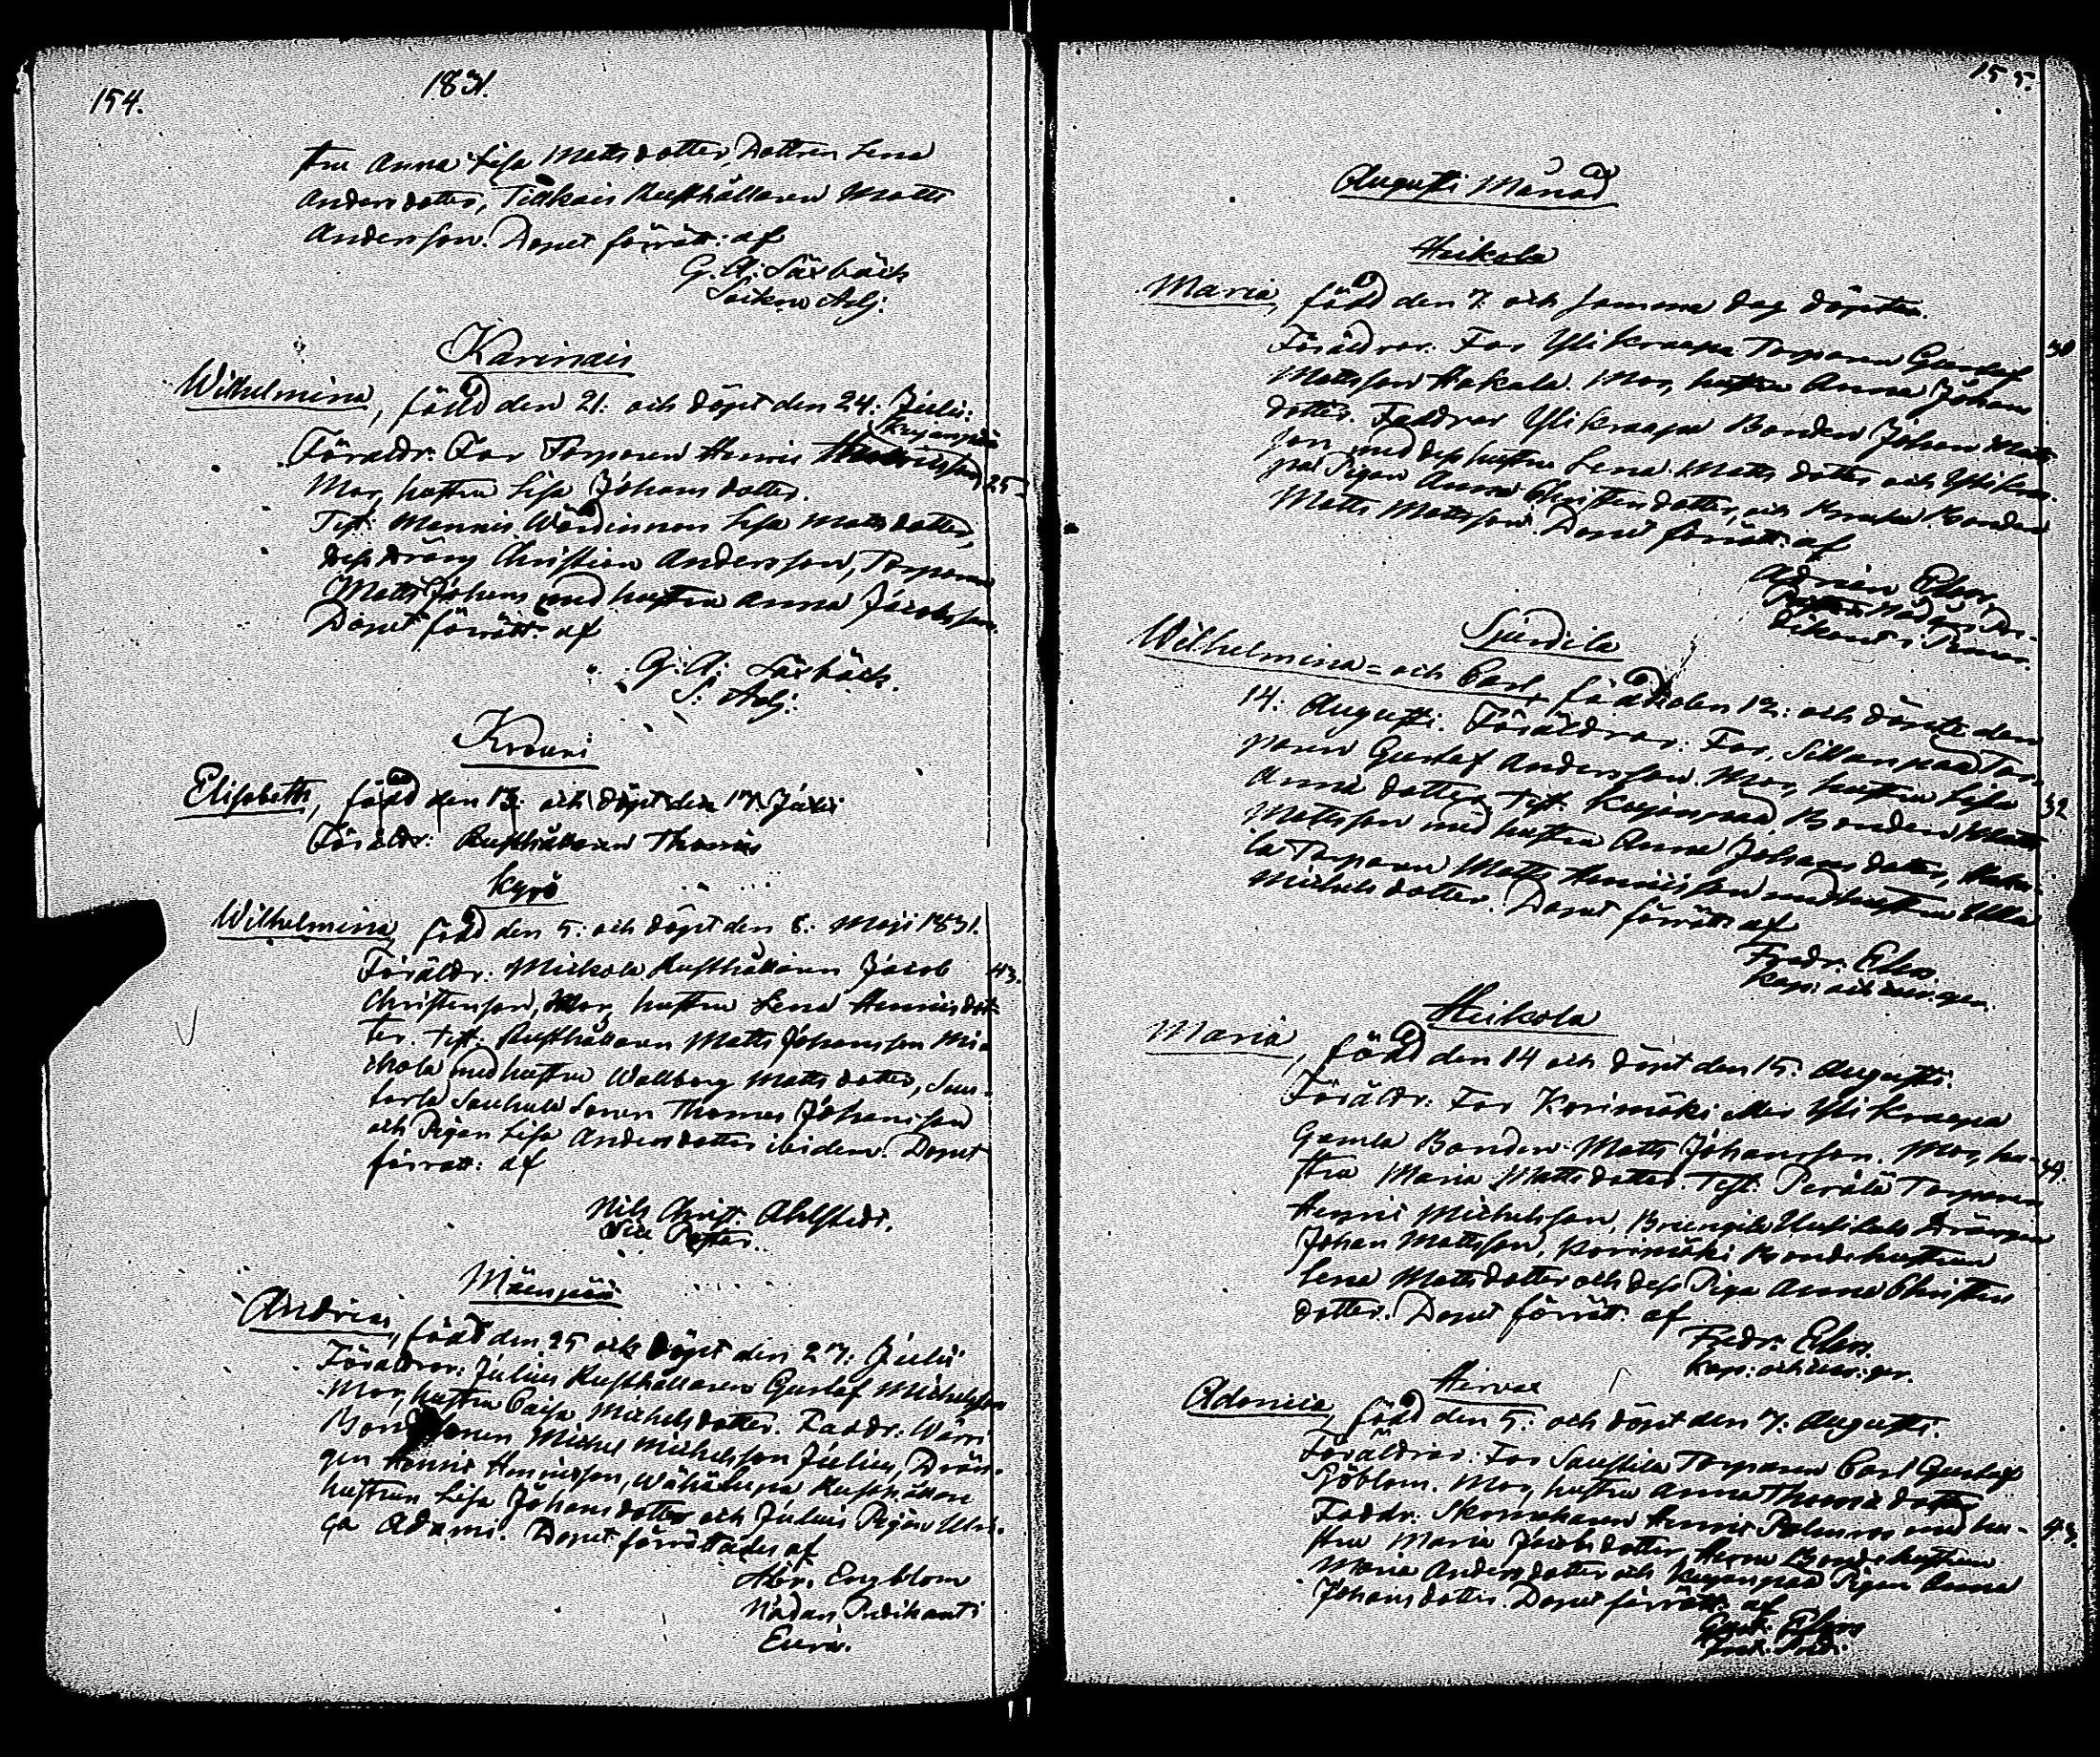 154.
1831.
stru Anna Lisa Matts dotter, Dottren Lena
Anders dotter, Tickais Rusthållaren Matts
Andersson. Dopet förrätt: af
G. A: Säxbäck
Socknе Adj:
Karinais
Wilhelmina, född den 21: och döpt den 24: Julii:
Kujanpää
Föräldr: Far Torparen Henric
25.
Mor, hustru Lisa Johans dotter.
Test: Mannis Wärdinnan Lisa Matts dotter,
dess dräng Christian Andersson, Torparen
Matts Johans med hustru Anna Jacobsson.
Dopet förrätt: af
G: A: Säxbäck.
S: Adj:
Krouvi
Elisabeth, född den 13: och döpt den 17. Julii
Föräldr: Rusthållaren Thomas
Kyrö
Wilhelmina, född den 5: och döpt den 8: Maji 1831.
Föräldr: Mickola Rusthållaren Jacob
43.
Christersson, Mor, hustru Lena Henrics dot-
ter. Test: Rusthållaren Matts Johansson Mi-
ckola med hustru Wallborg Matts dotter,
Sonen Thomas Johansson
och Pigan Lisa Anders dotter ibidem. Dopet
förrätt: af
Nils Christ. Ahlstedt.
Vice Pastor.
Mäenpää
Andreas, född den 25 och döpt den 27: Julii
Föräldrar: Julius Rusthållaren Gustaf Michelsson
Mor, hustru Caisa Michels dotter. Faddr:
Michel Michelsson Julius, Drän-
gen Henric Henricsson, Wähäkylä Rusthållare
hustrun Lisa Johans dotter och Julius Pigan Ulri-
ca Adami. Dopet förrättades af
Abr. Engblom
Nådårs Predikant i
Eura.
155.
Augusti Månad
Heikola
Maria, född den 7. och samma dag döpten.
30
Föräldrar: Far Yli Kraapa Torparen Gustaf
Mattsson Hakala. Mor, hustru Anna Johans
dotter. Faddrar Yli Kraapa Bonden Johan Matts
son med dess hustru Lena Matts dotter och Yli Kra-
pas Pigan Anna Christers dotter, och Kraapa Bonden
Matts Mattsson. Dopet förrätt: af
Adrian Elers
Wilhelmina = och Carl, födde den 12: och döpte den
14: Augusti. Föräldrar: Far, Sillanpää Tor-
paren Gustaf Andersson. Mor, hustru Lisa
32
Anna dotter. Test: Kujanpää Bonden Matts
Mattsson med hustru Anna Johans dotter,
la Torparen Matts Henricsson med hustru Ulla
Michels dotter. Dopet förrätt: af
Fredr: Elers
Kap: och
Heikola
Maria, född den 14 och döpt den 15: Augusti.
Föräldr: Far Korimäki eller Yli Kraapa
Gamla Bonden Matts Johansson. Mor, hu-
stru Maria Matts dotter. Test: Perälä Torparen
Henric Michelsson, Drängen
Johan Mattsson, Korimäki Bonde hustrun
Lena Matts dotter och dess Piga Anna Christers
dotter. Dopet förrätt: af
Fredr: Elers.
Kap: och
Hirvas
Adamina, född den 5: och döpt den 7: Augusti.
Föräldrar: Far Torparen Carl Gustaf
Sjöblom. Mor, hustru Anna Thomas dotter
Faddr: Skomakaren Henric Palmroos med hu-
43.
stru Maria Jacobs dotter, Bonde hustrun
Maria Anders dotter och Kujanpää Pigan Anna
Johans dotter. Dopet förrätt: af